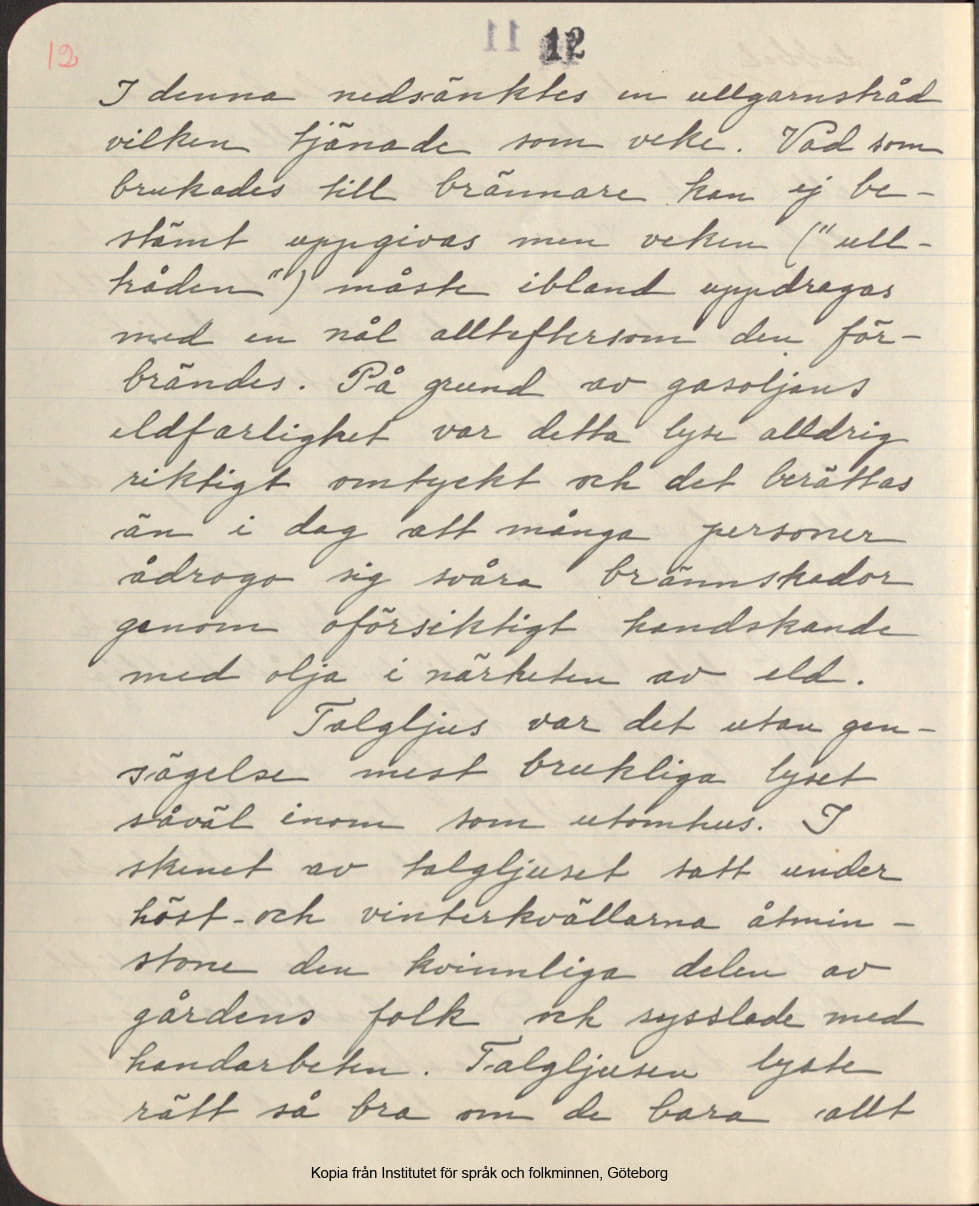 12
12
I denna nedsänktes en ullgarnstråd
vilken tjänade som veke. Vad som
brukades till brännare kan ej be-
stämt uppgivas men veken ("ull-
tråden") måste ibland uppdragas
med en nål allteftersom den för-
brändes. På grund av gasoljans
eldfarlighet var detta lyse alldrig
riktigt omtyckt och det berättas
än i dag att många personer
ådrogo sig svåra brännskador
genom oförsiktigt handskande
med olja i närheten av eld.
Talgljus var det utan gen-
sägelse mest brukliga lyset
såväl inom som utomhus. I
skenet av talgljuset satt under
höst- och vinterkvällarna åtmin-
stone den kvinnliga delen av
gårdens folk och sysslade med
handarbeten. Talgljusen lyste
rätt så bra om de bara allt
Kopia från Institutet för språk och folkminnen, Göteborg